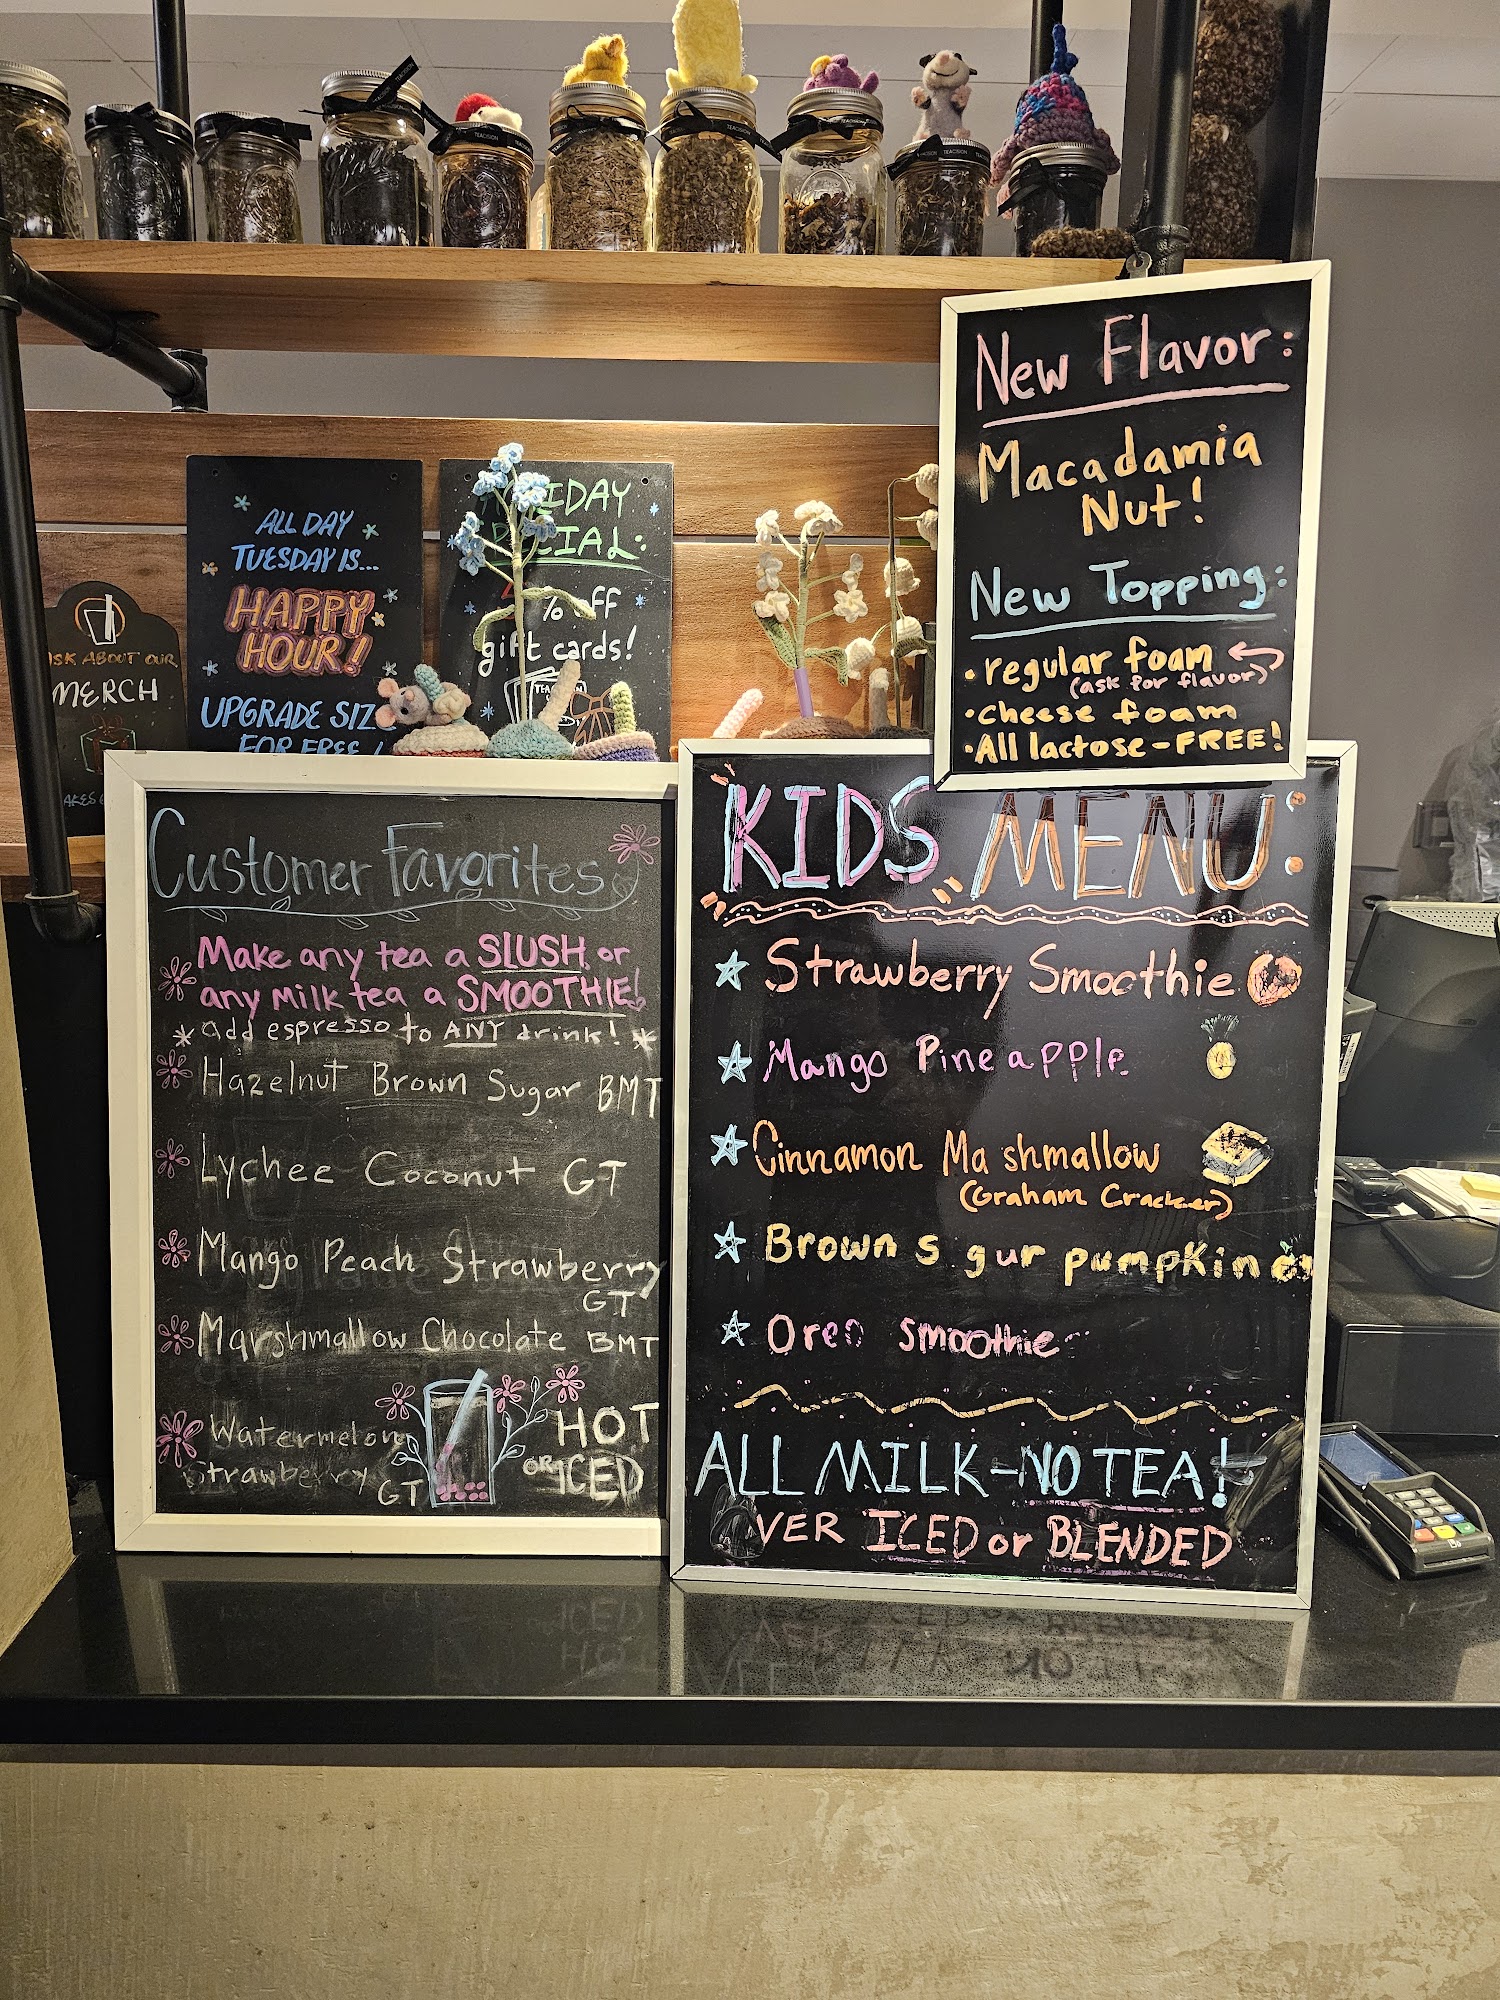 TEACISION
TEACISION
ALL DAY
TUESDAY IS...
HAPPY
HOUR!
UPGRADE SIZ
FOR FREE!
IDAY
CIAL:
% off
gift cards!
ASK ABOUT OUR
MERCH
New Flavor:
Macadamia
Nut!
New Topping:
• regular foam
(ask for flavor)
• cheese foam
• All lactose-FREE!
Customer Favorites
Make any tea a SLUSH or
any milk tea a SMOOTHIE!
* add espresso to ANY drink! *
Hazelnut Brown Sugar BMT
Lychee Coconut GT
Mango Peach Strawberry
GT
Marshmallow Chocolate BMT
Watermelon
Strawberry GT
HOT
OR ICED
KIDS MENU:
Strawberry Smoothie
Mango Pineapple
Cinnamon Ma shmallow
(Graham Cracker)
Brown s gur pumpkin
Oreo smoothie
ALL MILK-NO TEA!
VER ICED or BLENDED